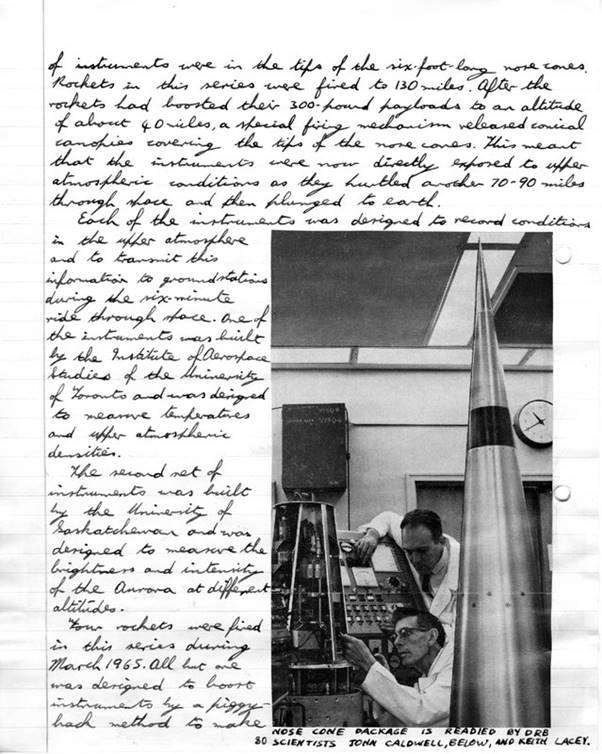 of instruments were in the tips of the six-foot-long nose cones.
Rockets in this series were fired to 130 miles. After the
rockets had boosted their 300-pound payloads to an altitude
of about 40 miles, a special firing mechanism released conical
canopies covering the tips of the nose cones. This meant
that the instruments were now directly exposed to upper
atmospheric conditions as they hurtled another 70-90 miles
through space and then plunged to earth.
Each of the instruments was designed to record conditions
in the upper atmosphere
and to transmit this
information to ground stations
during the six-minute
ride through space. One of
the instruments was built
by the Institute of Aerospace
Studies of the University
of Toronto and was designed
to measure temperatures
and upper atmospheric
densities.
The second set of
instruments was built
by the University of
Saskatchewan and was
designed to measure the
brightness and intensity
of the Aurora at different
altitudes.
Four rockets were fired
in this series during
March 1965. All but one
was designed to boost
instruments by a piggy-
back method to make
NOSE CONE PACKAGE IS READIED BY DRB
80 SCIENTISTS JOHN CALDWELL, BELOW, AND KEITH LACEY.